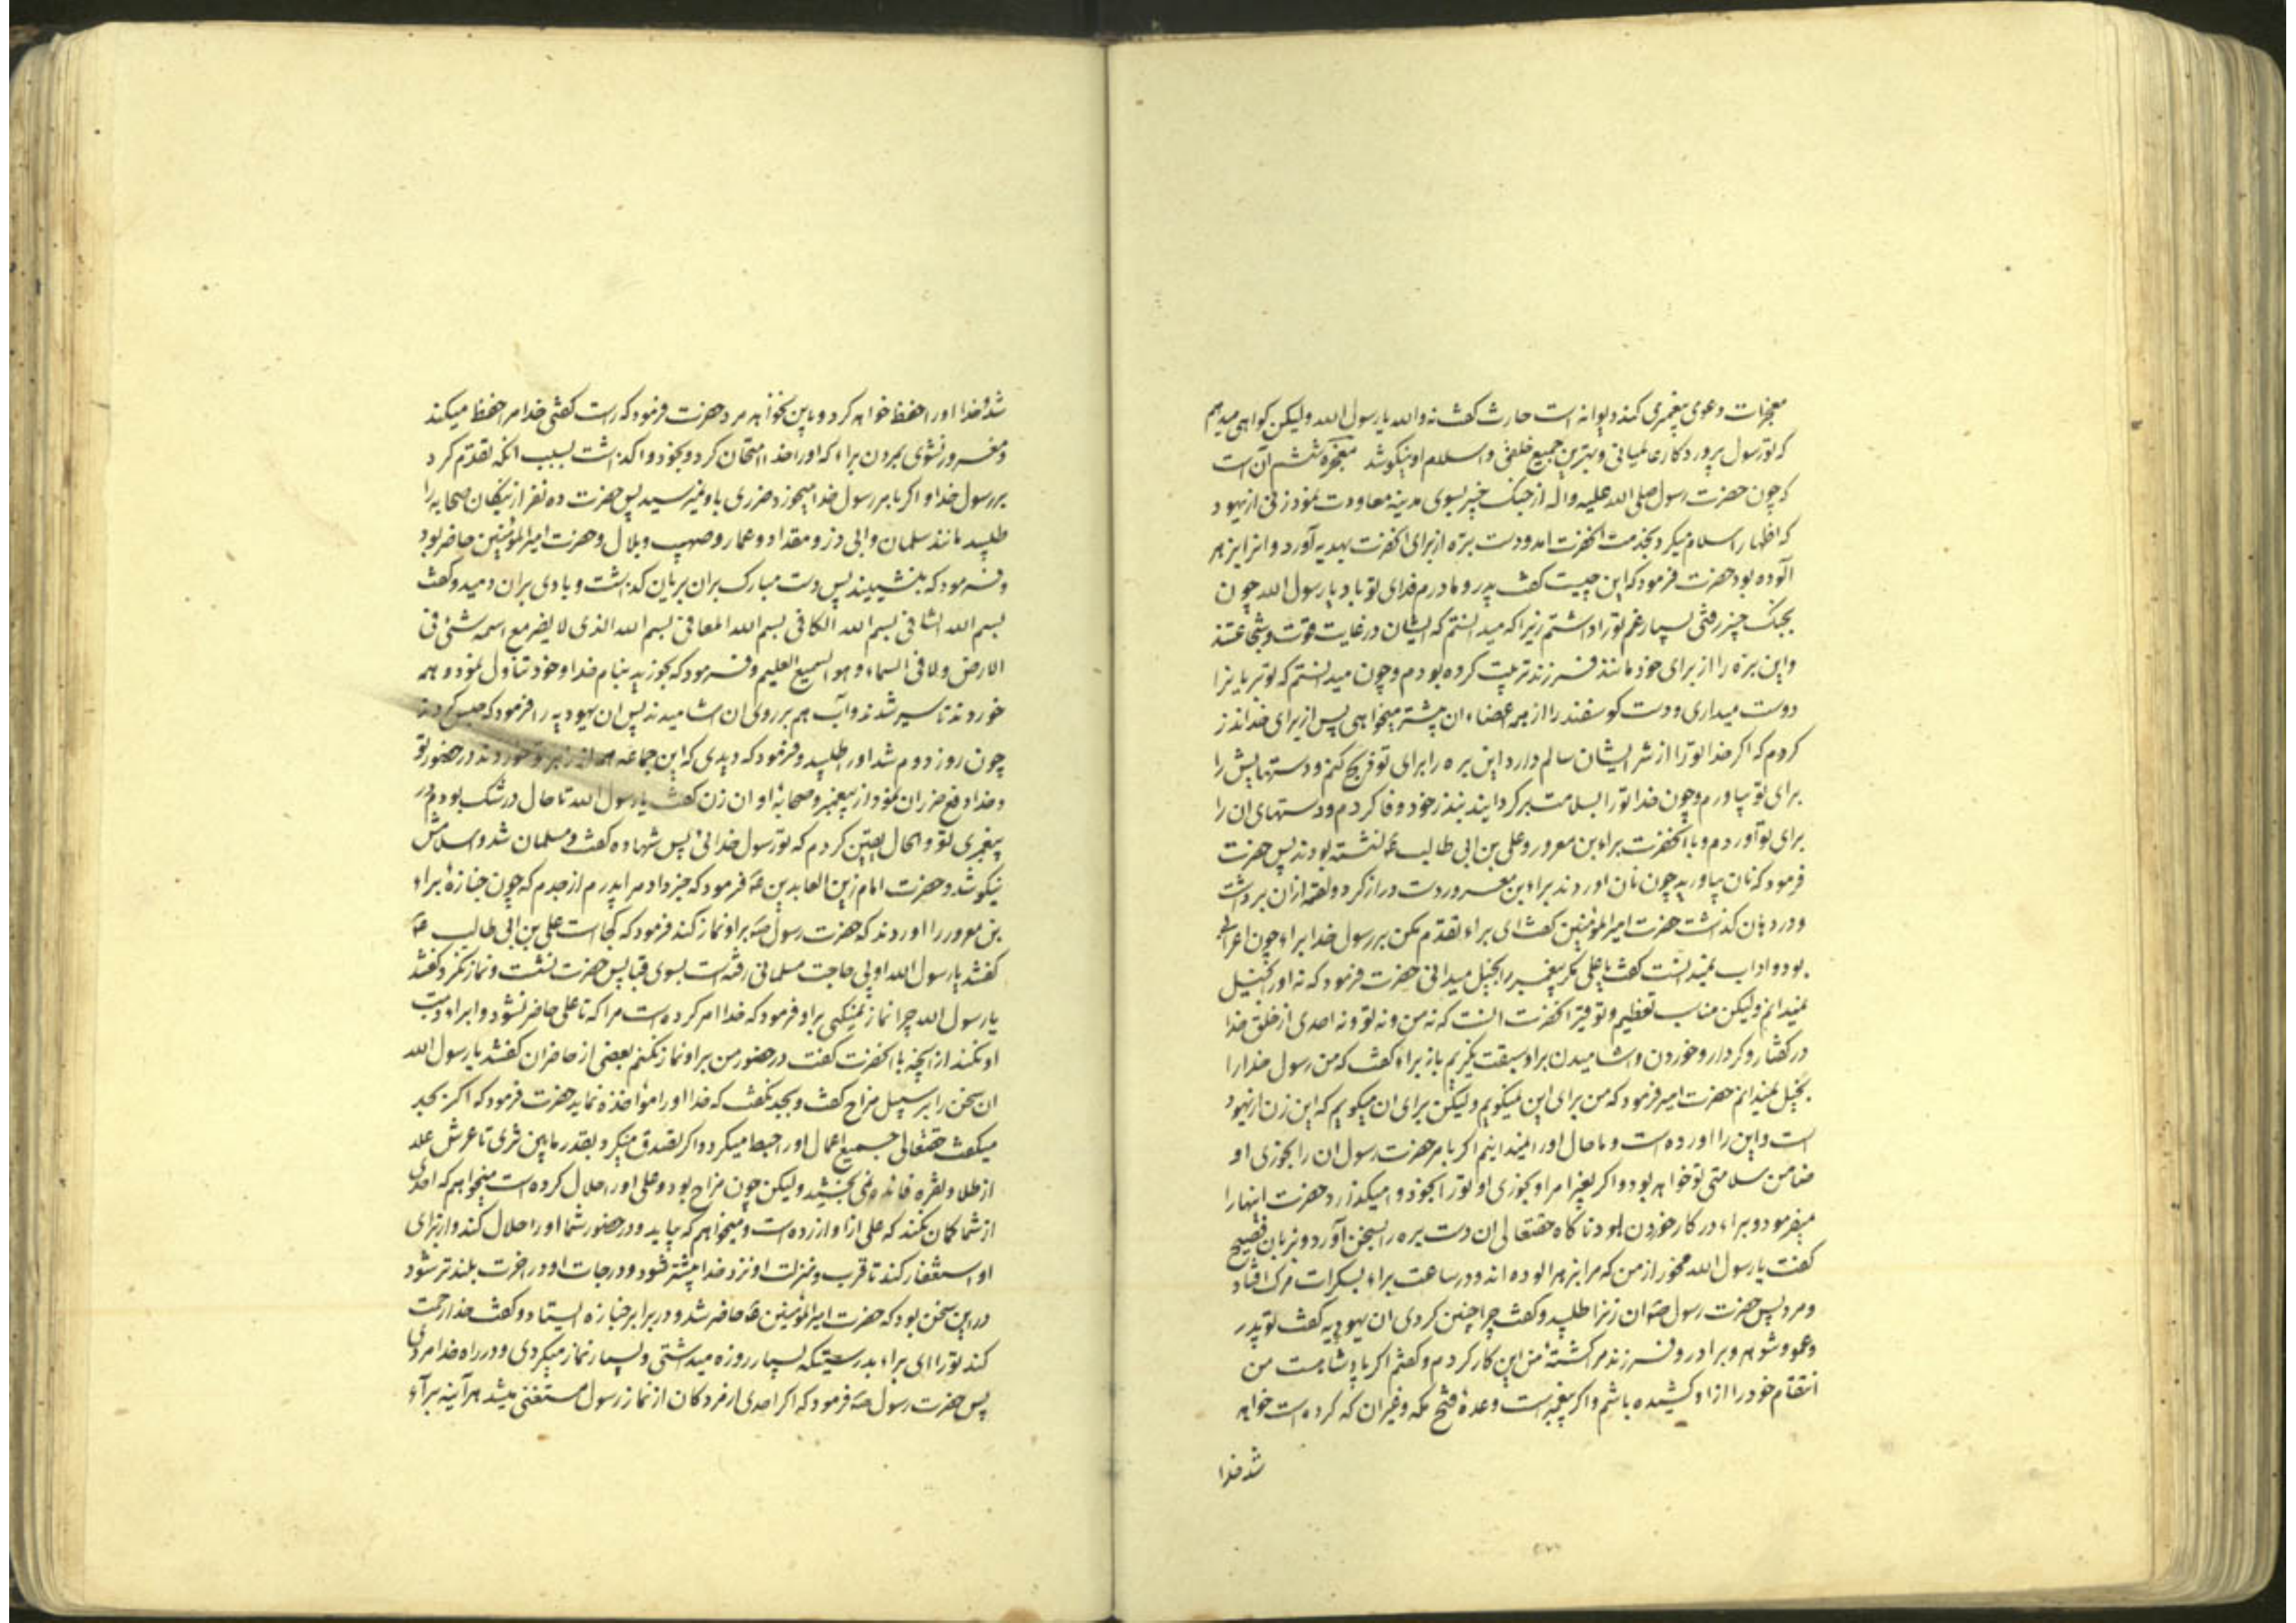 معجزات دعوی پیغمبری کند دیوانه است حارث گفت نه والله یا رسول الله ولیکن کواهی میدهم
که تو رسول پروردکار عالمیانی و بهترین جمیع خلقی و اسلام او نیکو شد معجزه ششم آن است
که چون حضرت رسول صلی الله علیه واله از جنک خیبر بسوی مدینه معاودت نمود زنی از یهود
که اظهار اسلام میکرد بخدمت انحضرت امد و دست بره از برای انحضرت بهدیه آورد و انرا بزهر
آلوده بود حضرت فرمود که این چیست کفت پدر و مادرم فدای تو باد یا رسول الله چون
بجنک خیبر رفتی بسیار غم تو را داشتم زیرا که میدانستم که ایشان در غایت قوت و شجاعتند
و این بره را از برای خود مانند فرزند تربیت کرده بودم و چون میدانستم که تو بریانرا
دوست میداری و دست کوسفند را از همه اعضاء ان بیشتر میخواهی پس از برای خدا نذر
کردم که اکر خدا تو را از شر ایشان سالم دارد این بره را برای تو ذبح کنم و دستهایش را
برای تو بیاورم و چون خدا تو را بسلامت برکردانید بنذر خود وفا کردم و دستهای ان را
برای تو آوردم و با انحضرت براء بن معرور و علی بن ابی طالب ع نشسته بودند پس حضرت
فرمود که نان بیاورید چون نان اوردند براء بن معرور دست دراز کرد و لقمه ازان برداشت
و در دهان کذاشت حضرت امیرالمؤمنین کفت ای براء تقدم مکن بر رسول خدا براء چون اعرابی
بود و اداب نمیدانست کفت یا علی مکر پیغمبر را بخیل میدانی حضرت فرمود که نه او را بخیل
نمیدانم ولیکن مناسب تعظیم و توقیر انحضرت انست که نه من و نه تو و نه احدی از خلق خدا
در کفتار و کردار و خوردن و اشامیدن بر او سبقت نکیریم باز براء کفت که من رسول خدا را
بخیل نمیدانم حضرت امیر فرمود که من برای این نمیکویم ولیکن برای ان میکویم که این زن از یهود
است و این را اورده است و ما حال او را نمیدانیم اکر بامر حضرت رسول ان را بخوری او
ضامن سلامتی تو خواهد بود و اکر بغیر امر او بخوری او تو را بخود وامیکذارد حضرت اینها را
میفرمود و براء در کار خوردن بود ناکاه حقتعالی ان دست بره را بسخن آورد و بزبان فصیح
کفت یا رسول الله مخور از من که مرا بزهر الوده اند و در ساعت براء بسکرات مرک افتاد
و مرد پس حضرت رسول ص ان زنرا طلبید و کفت چرا چنین کردی ان یهودیه کفت تو پدر
و عمو و شوهر و برادر و فرزند مرا کشتهٔ من این کار کردم و کفتم اکر پادشاهست من
انتقام خود را از او کشیده باشم و اکر پیغمبر است و عدهٔ فتح مکه و غیر ان که کرده است خواهد
شد خدا
شد و خدا او را حفظ خواهد کرد و باین نخواهد مرد حضرت فرمود که راست کفتی خدا مرا حفظ میکند
و مغرور نشوی بمردن براء که او را خدا امتحان کرد و بخود واکذاشت بسبب انکه تقدم کرد
بر رسول خدا و اکر بامر رسول خدا میخورد ضرری باو نمیرسید پس حضرت ده نفر از نیکان صحابه را
طلبید مانند سلمان و ابی ذر و مقداد و عمار و صهیب و بلال و حضرت امیرالمؤمنین حاضر بود
و فرمود که بنشینید پس دست مبارک بران بریان کذاشت و بادی بران دمید و کفت
بسم الله الشافی بسم الله الکافی بسم الله المعافی بسم الله الذی لا یضر مع اسمه شئ فی
الارض ولا فی السماء وهو السمیع العلیم و فرمود که بخورید بنام خدا و خود تناول نمود و همه
خوردند تا سیر شدند و آب هم بر روی ان اشامیدند پس ان یهودیه را فرمود که حبس کردند
چون روز دوم شد او را طلبید و فرمود که دیدی که این جماعه همه از زهر تو خوردند در حضور تو
و خدا دفع ضرر ان نمود از پیغمبر و صحابهٔ او ان زن کفت یا رسول الله تا حال در شک بودم در
پیغمبری تو و الحال یقین کردم که تو رسول خدائی پس شهاده کفت و مسلمان شد و اسلامش
نیکو شد و حضرت امام زین العابدین ع فرمود که خبر داد مرا پدرم از جدم که چون جنازهٔ براء
بن معرور را اوردند که حضرت رسول ص بر او نماز کند فرمود که کجاست علی بن ابی طالب ع
کفتند یا رسول الله او پی حاجت مسلمانی رفته است بسوی قبا پس حضرت نشست و نماز نکرد کفتند
یا رسول الله چرا نماز نمیکنی بر او فرمود که خدا امر کرده است مرا که تا علی حاضر نشود و ابراء ذمت
او نکند از انچه با انحضرت کفت در حضور من بر او نماز نکنم بعضی از حاضران کفتند یا رسول الله
ان سخن را بر سبیل مزاح کفت و بجد نکفت که خدا او را مواخذه نماید حضرت فرمود که اکر بجد
میکفت حقتعالی جمیع اعمال او را حبط میکرد و اکر تصدق میکرد بقدر مابین ثری تا عرش علا
از طلا و نقره فائده نمی بخشید ولیکن چون مزاح بود و علی او را حلال کرده است میخواهم که احدی
از شما کمان نکند که علی از او ازرده است و میخواهم که بیاید و در حضور شما او را حلال کند و از برای
او استغفار کند تا قرب و منزلت او نزد خدا بیشتر شود و درجات او در اخرت بلندتر شود
در این سخن بود که حضرت امیرالمؤمنین ع حاضر شد و در برابر جنازه ایستاد و کفت خدا رحمت
کند تو را ای براء بدرستیکه بسیار روزه میداشتی و بسیار نماز میکردی و در راه خدا مردی
پس حضرت رسول ص فرمود که اکر احدی از مردکان از نماز رسول مستغنی میشد هر آینه براء